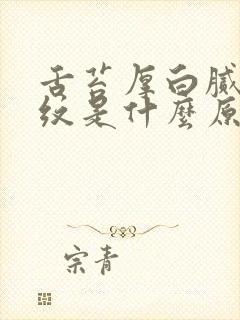 舌苔厚白腻
纹是什麼原
宗青